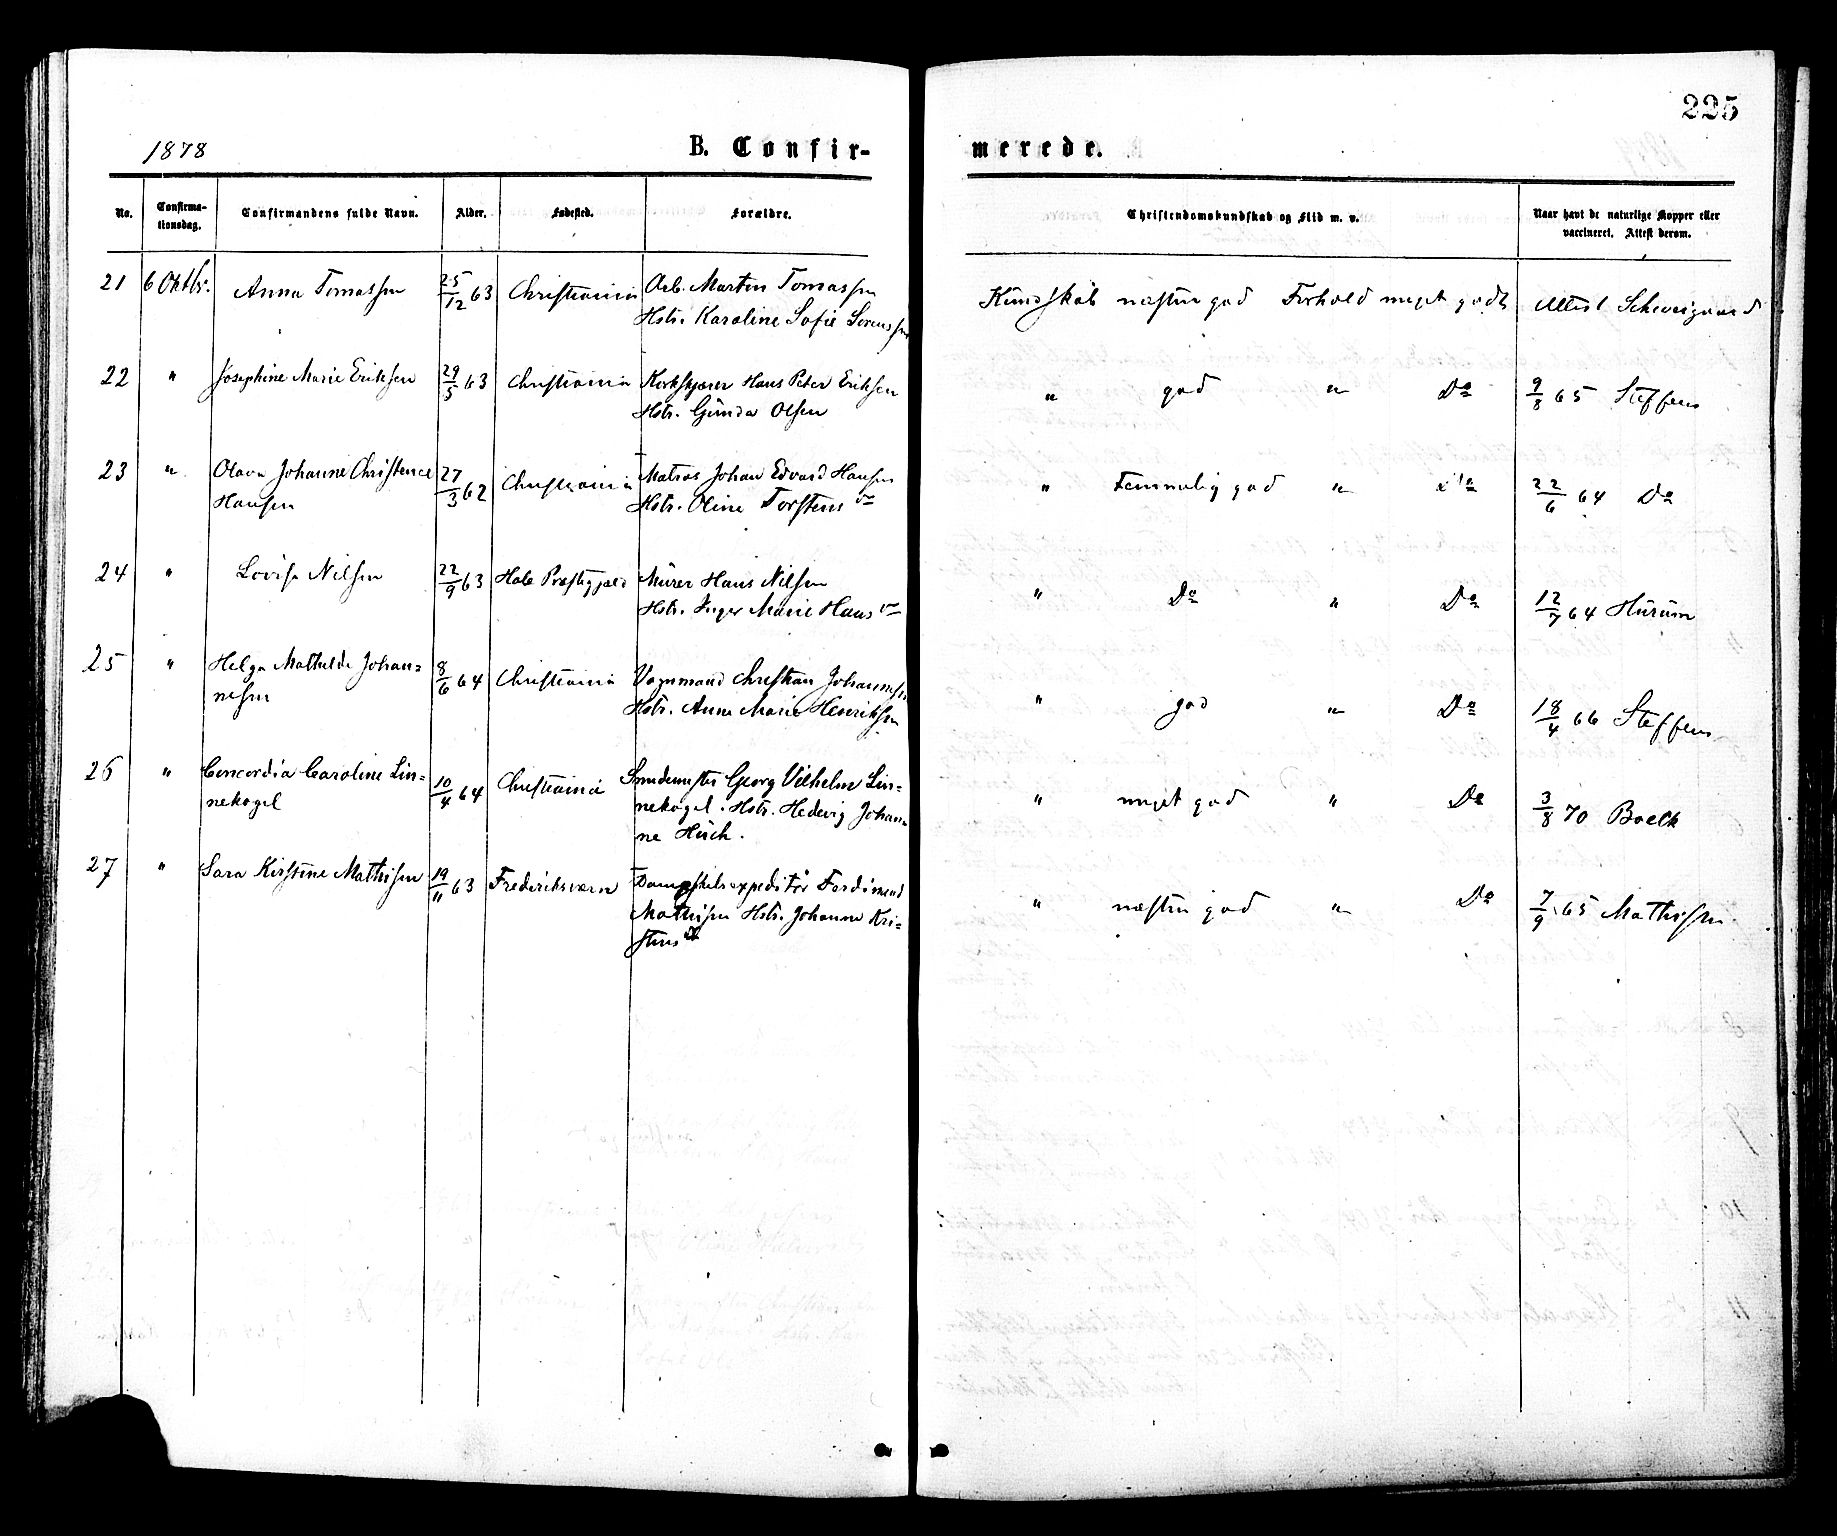 225
1878 B. Confir- merede.
No. Confirma- tionsdag. Confirmandens fulde Navn. Alder. Fødested. Forældre. Christendomskundskab og Flid m. v. Naar havt de naturlige Kopper eller vaccineret. Attest derom.
21 6 Oktbr. Anna Tomassen 25/12 63 Christiania Arb. Martin Tomassen Kundskab næsten god Forhold meget godt Attest Schweigaard
Hstr. Karoline Sofie Sørenssen
22 " Josephine Marie Eriksen 29/5 63 Christiania Korkskjærer Hans Peter Eriksen " god " Do 9/8 65 Steffens
Hstr. Gunda Olsen
23 " Olava Johanne Christence 27/3 62 Christiania Matros Johan Edvard Hansen " Temmelig god " Do 22/6 64 Do
Hansen Hstr. Oline Torstens
24 " Lovise Nilsen 22/9 63 Hole Præstegjæld Murer Hans Nilsen " Do " Do 12/7 64 Hurum
Hstr. Inger Marie Hans
25 " Helga Mathilde Johan= 8/6 64 Christiania Vognmand Christian Johannesen " god " Do 18/4 66 Steffens
nesen Hstr. Anne Marie Henriksen
26 " Concordia Caroline Lin= 10/4 64 Christiania Smedemester Georg Vilhelm Lin= " meget god " Do 3/8 70 Boeck
nekogel nekogel. Hstr. Hedevig Johan=
ne Huch.
27 " Sara Kirstine Mathisen 19/11 63 Frederiksværn Dampskibsexpeditør Ferdinand " næsten god " Do 7/9 65 Mathisen
Mathisen Hstr. Johanne Kri=
stens